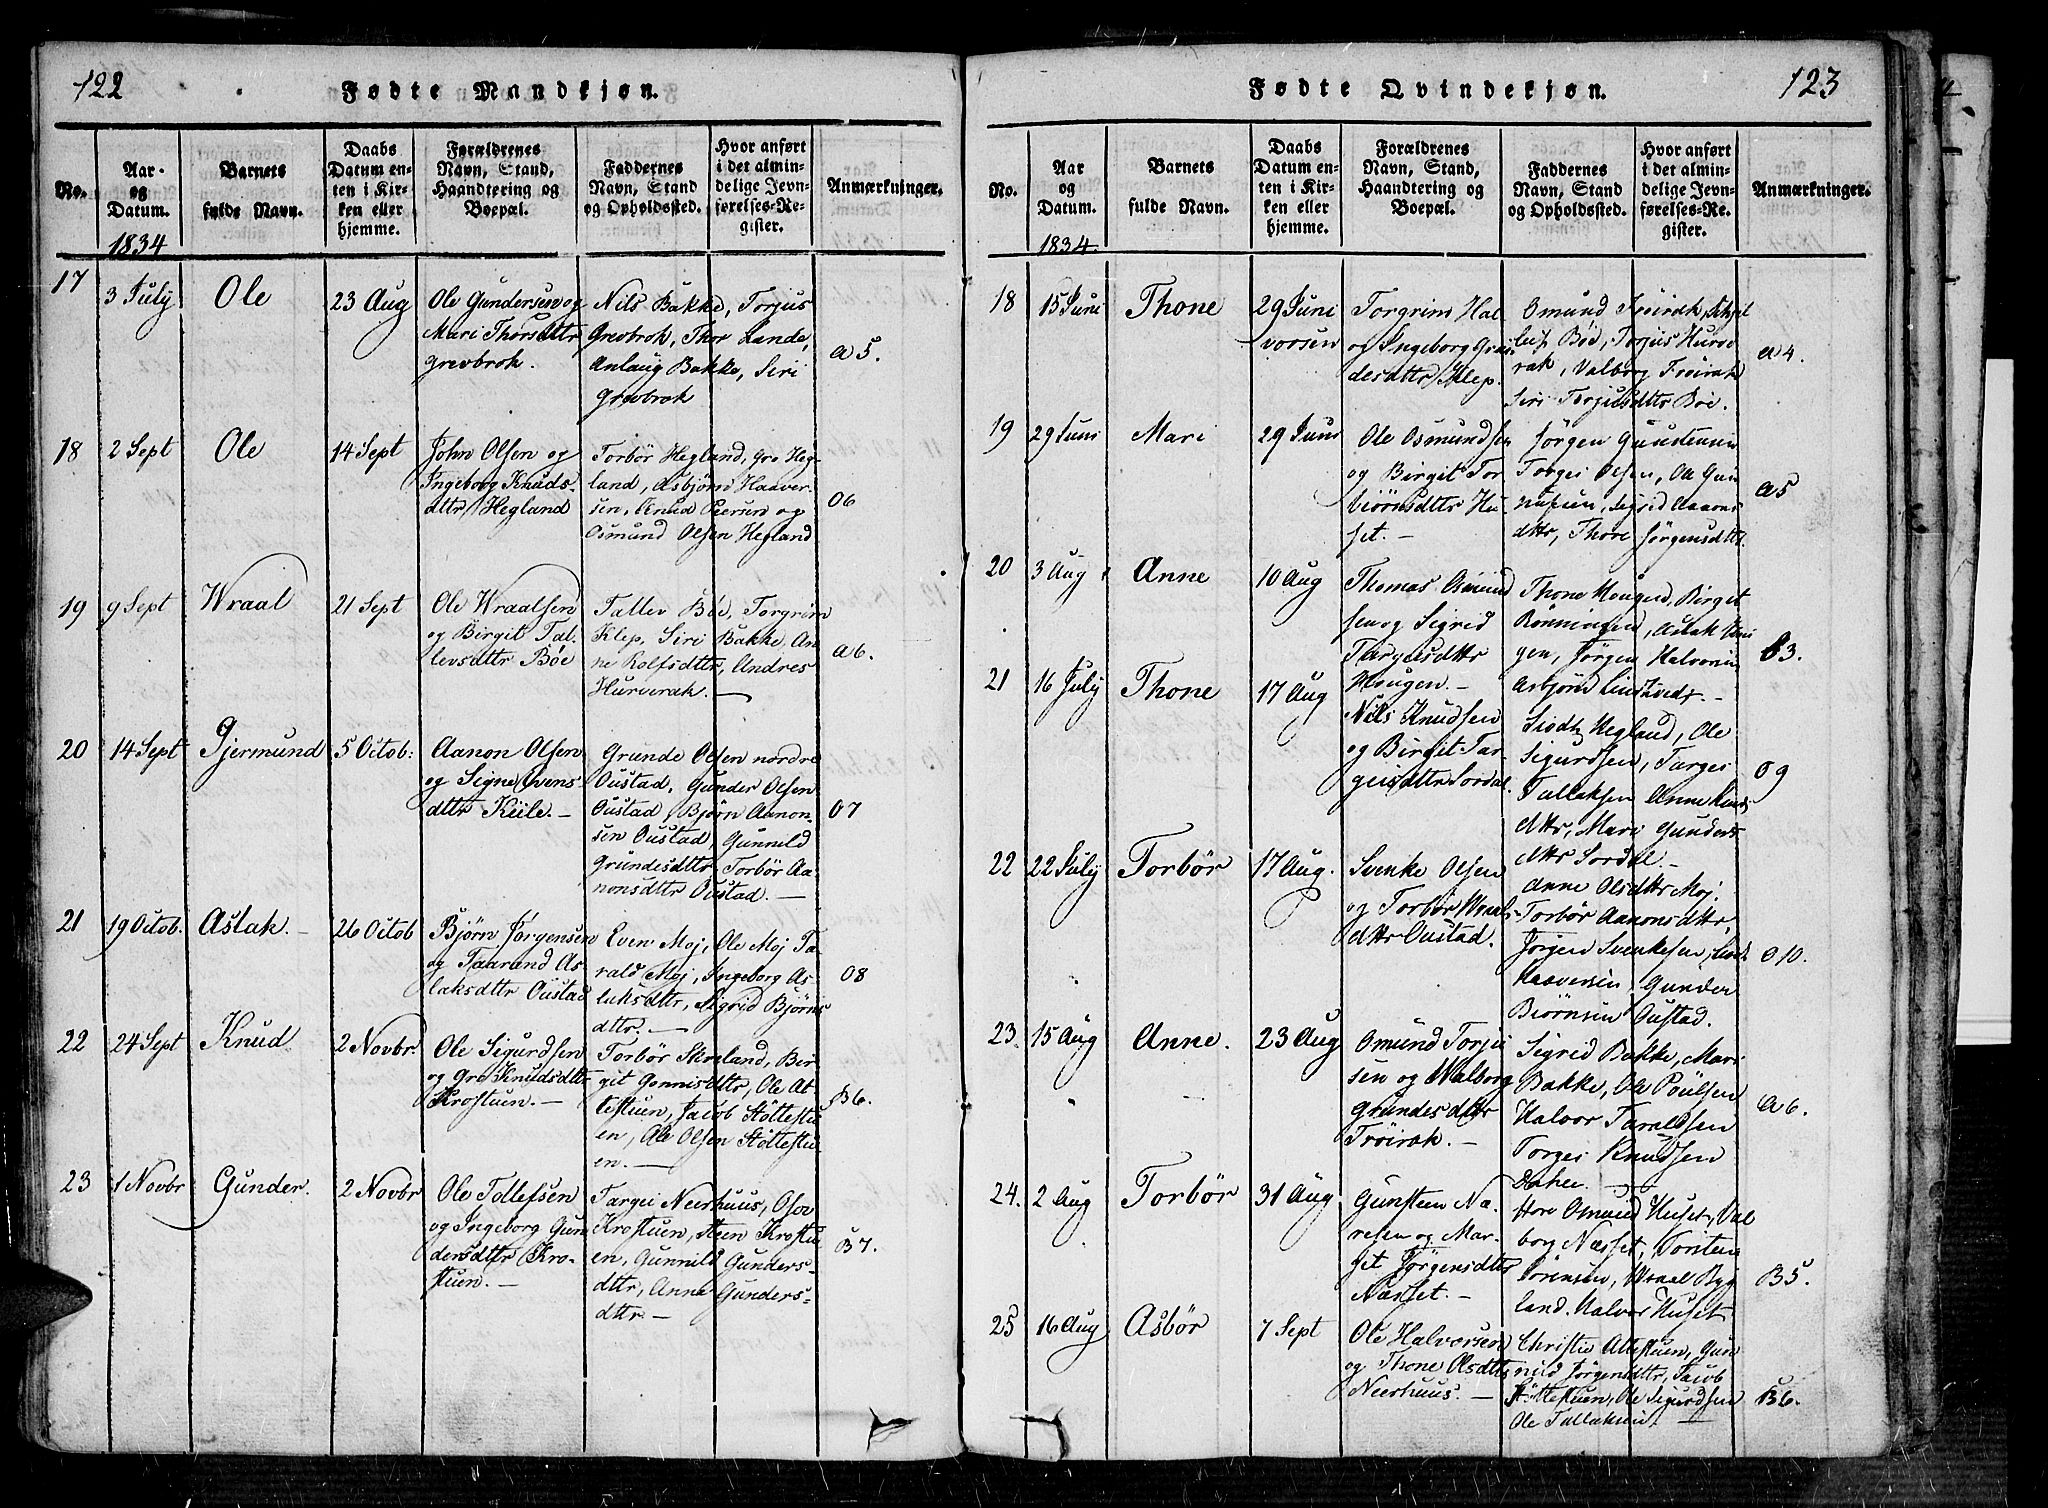 122
Fødte Mandkjøn.
No.
Aar-
og
Datum.
1834
Barnets
fulde Navn.
Daabs
Datum en-
ten i Kir-
ken eller
hjemme.
Forældrenes
Navn, Stand,
Haandtering og
Boepæl.
Faddernes
Navn, Stand
og Opholdssted.
Hvor anført
i det almin-
delige Jevn-
førelses-Re-
gister.
Anmærkninger.
17
3 July
Ole
23 Aug
Ole Gundersen og
Mari Thorsdttr
Grevbrok.
Nils Bakke, Torjus
Grevbrok, Thor Lande,
Anlaug Bakke, Siri
Grevbrok
a 5.
18
2 Sept
Ole
14 Sept
John Olsen og
Ingeborg Knuds-
dttr Hegland
Torbör Hegland, Gro Heg-
land, Asbjörn Haaver-
sen, Knud Peersen og
Osmund Olsen Hegland
O6
19
9 Sept
Wraal
21 Sept
Ole Wraalsen
og Birgit Tal-
levsdttr Böe
Tallev Böe, Torgrim
Klep, Siri Bakke, An-
ne Rolfsdttr, Andres
Hurverak. —
a 6.
20
14 Sept
Gjermund
5 Octob:
Aanon Olsen
og Signe Evens-
dttr Kiile. —
Grunde Olsen nordre
Oustad, Gunder Olsen
Oustad, Björn Aanon-
sen Oustad, Gunnild
Grundesdttr, Torbör Aa-
nonsdttr Oustad. —
O7
21
19 Octob.
Aslak. —
26 Octob
Björn Jörgensen
og Taarand As-
laksdttr Oustad
Even Moj, Ole Moj Ta-
rald Moj, Ingeborg As-
laksdttr, Sigrid Björns
dttr. —
O8
22
24 Sept
Knud.
2 Novbr.
Ole Sigurdsen
og Gro Knudsdttr
Krostuen. —
Torbör Skreland, Bir-
git Gonnisdttr, Ole At
testuen, Jacob Stöttestu
en, Ole Olsen Stöttestu
en. —
B6.
23
1 Novbr
Gunder.
2 Novbr
Ole Tollefsen
og Ingeborg Gun
dersdttr Kro-
stuen. —
Targei Neerhuus, Osov
Krostuen, Steen Krostu
en, Gunnild Gunders-
dttr, Anne Gunders-
dttr. —
B7.
123
Fødte Qvindekjøn.
No.
Aar
og
Datum.
1834.
Barnets
fulde Navn.
Daabs
Datum en-
ten i Kir-
ken eller
hjemme.
Forældrenes
Navn, Stand,
Haandtering og
Boepæl.
Faddernes
Navn, Stand
og Opholdssted.
Hvor anført
i det almin-
delige Jevn-
førelses-Re-
gister.
Anmærkninger.
18
15 Juni
Thone
29 Juni
Torgrim Hal
vorsen
og Ingeborg Grun-
desdttr Klep.
Omund Fröirak,
Böe, Torjus Hurve
rak, Valborg Fröirak
Siri Torjusdttr Böe.
a 4.
19
29 Juni
Mari
29 Juni
Ole Osmundsen
og Birgit Tor
biörnsdttr Hu-
set. —
Jörgen Gunstensen
Torges Olsen, Ole Gun
Sigrid Aanons
dttr, Thore Jörgensdttr.
a 5
20
3 Aug
Anne
10 Aug
Thomas Osmund
sen og Sigrid
Targeisdttr
Hougen. —
Thone Hougen, Birget
Rönningen, Aslak
gen, Jörgen Halvorsen
Asbjörn Lindtveds. —
B3.
21
16 July
Thone
17 Aug
Nils Knudsen
og Birgit Tar-
geisdttr Sordal.
Hegland, Ole
Sigurdsen, Targes
Tallaksen Anne Knuds
dttr, Mari Gunders
dttr Sordal. —
O9
22
22 July
Torbör
17 Aug.
Svenke Olsen
og Torbör Wraals-
dttr Oustad.
Anne Olsdttr Moj.
Torbör Aanonsdttr,
Jörgen Svenkesen,
Haaversen, Gunder
Biörnsen Oustad.
O10.
23.
15 Aug
Anne.
23 Aug
Omund Torju
sen og Walborg
Grundesdttr
Fröirak. —
Sigrid Bakke, Mari
Bakke, Ole Poulsen
Halvor Taraldsen
Torges Knudsen
Dahle. —
a 6.
24.
2 Aug
Torbör
31 Aug
Gunsteen Na-
resen og Mar-
git Jörgensdttr
Næset. —
Hore Osmund Huset, Val
borg Næsset, Torsten
Sörensen, Wraal Byg
land. Halvor Huset
B5.
25
16 Aug
Asbör
7 Sept
Ole Halvorsen
og Thone Olsdttr
Neerhuus. —
Christie Attestuen, Gun
nild Jörgensdttr, Jacob
Stöttestuen, Ole Sigurdsen
Ole Tallaksen. —
B6.